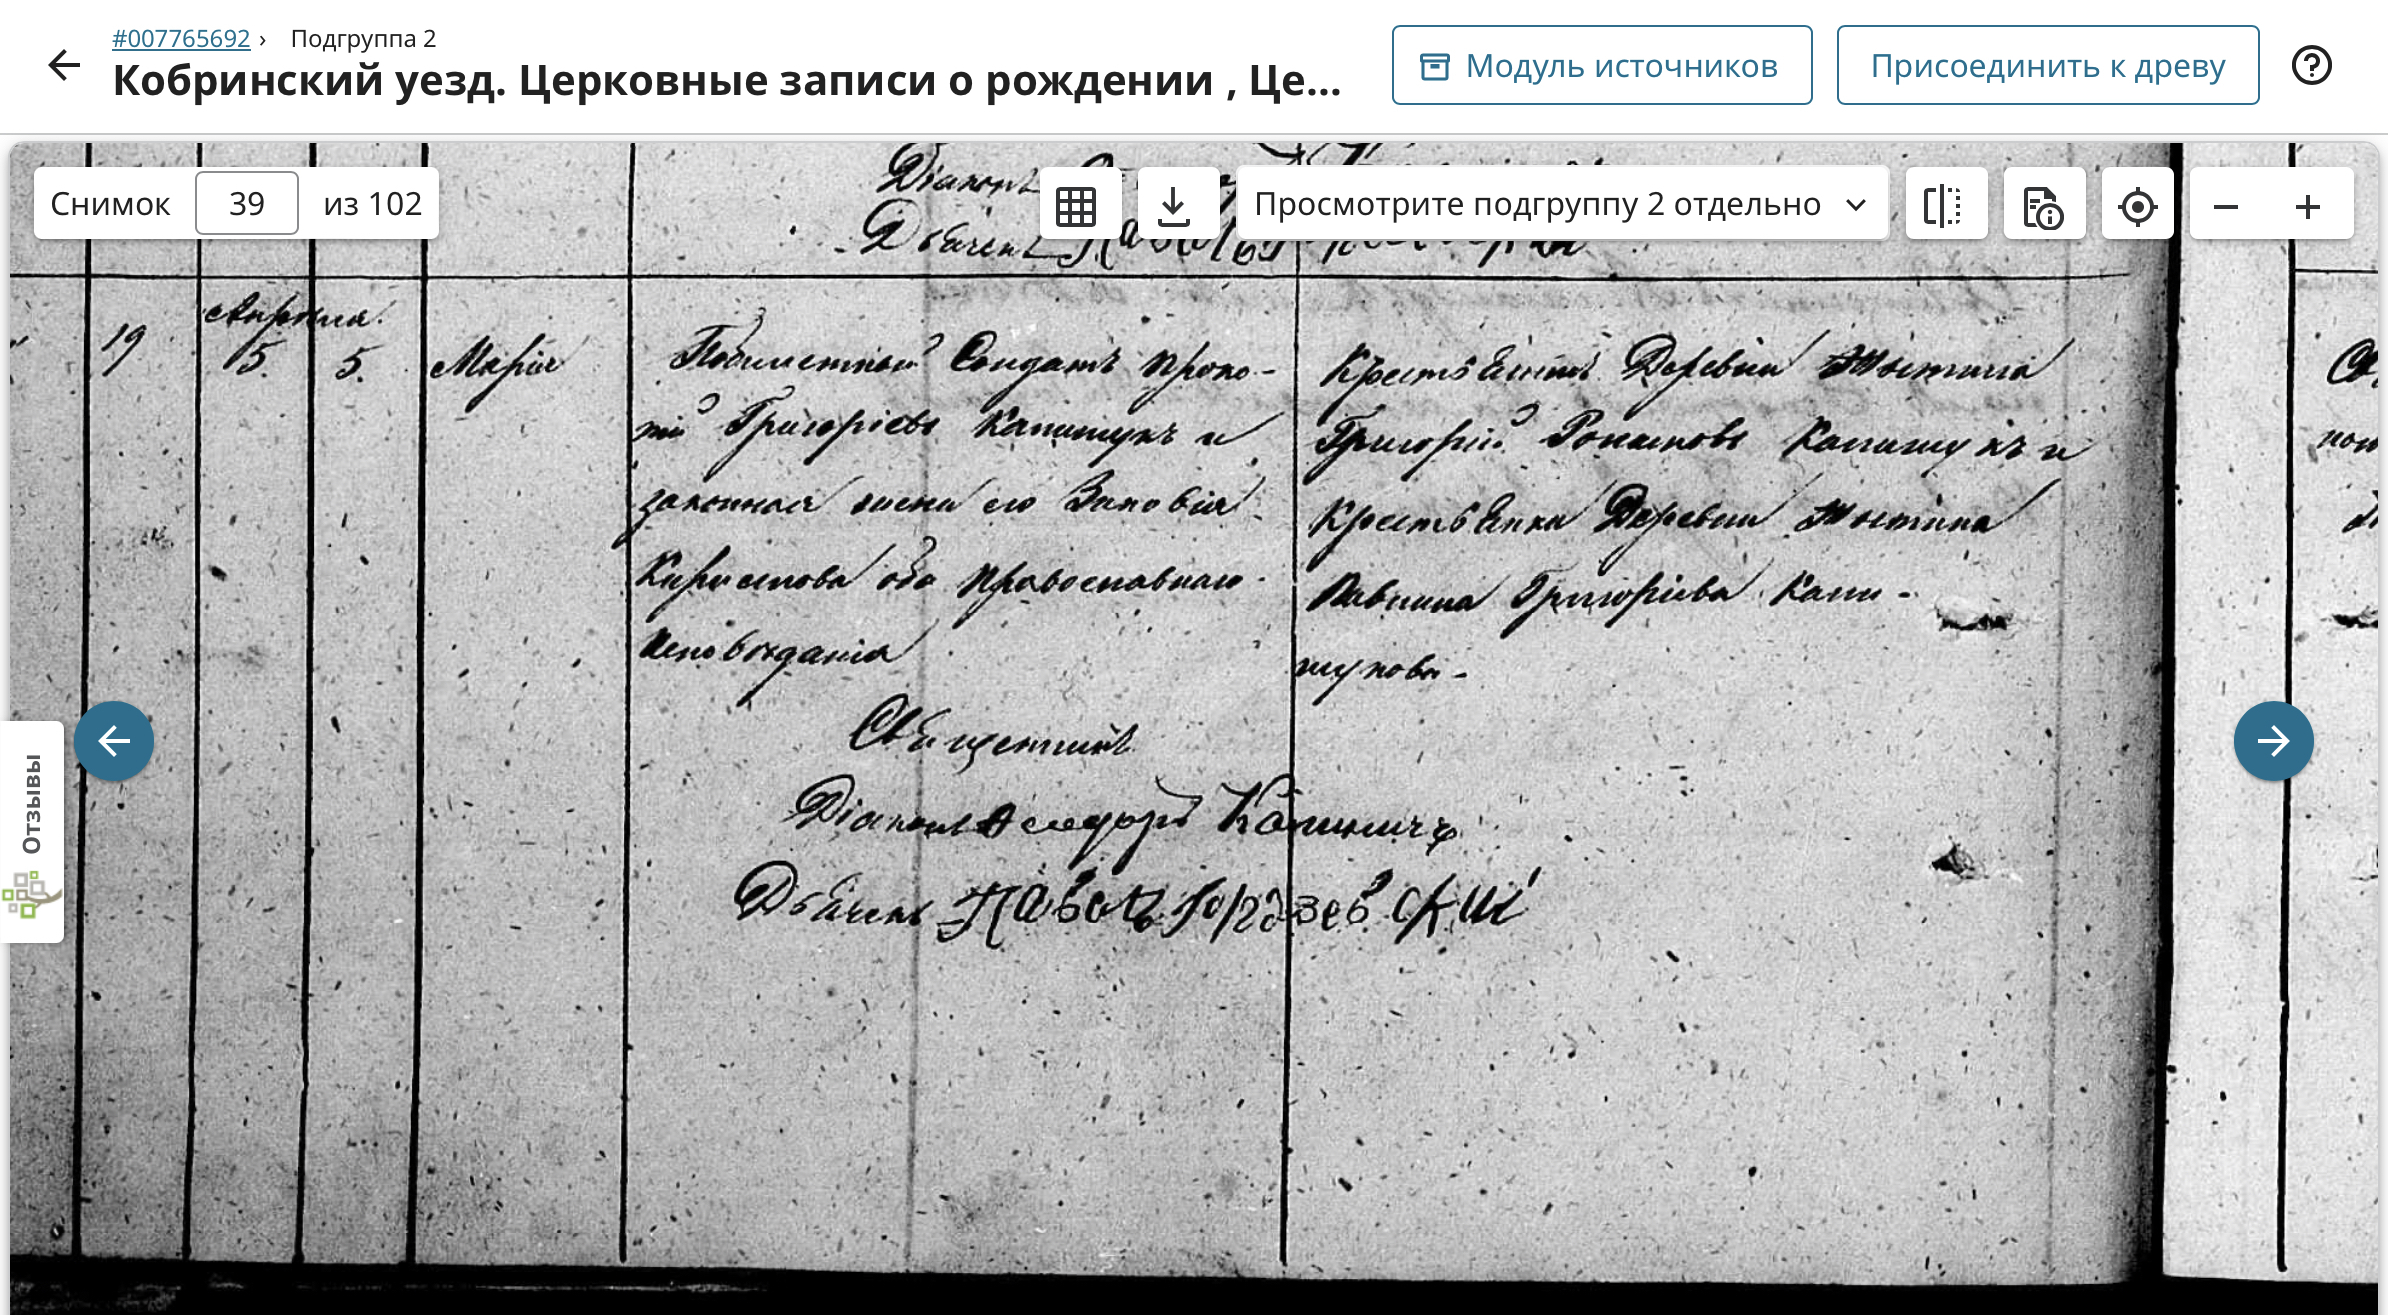 #007765692 › Подгруппа 2
Кобринский уезд. Церковные записи о рождении , Це...
Модуль источников
Присоединить к древу
Снимок 39 из 102
Просмотрите подгруппу 2 отдельно
Отзывы
Діаконъ
Дьячекъ Павелъ
19
Апрѣля
5. 5. Марія
Солдатъ Проко-
пій Григоріевъ Капишукъ и
законная жена его Зиновія
Кирилова оба православнаго
исповѣданія
Крестьянинъ Деревни
Григорій Романовъ Капишукъ и
Крестьянка Деревни
Павлина Григоріева Капи-
шукова -
Священникъ
Діаконъ
Дьячекъ Павелъ